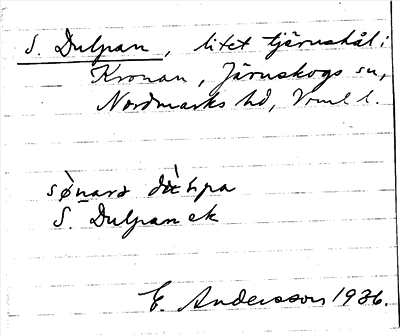 S. Dulpan, litet tjärnshål i
Kronan, Järnskogs sn,
Nordmarks hd, Vrml l.
S. Dulpan ek
E. Andersson 1936.